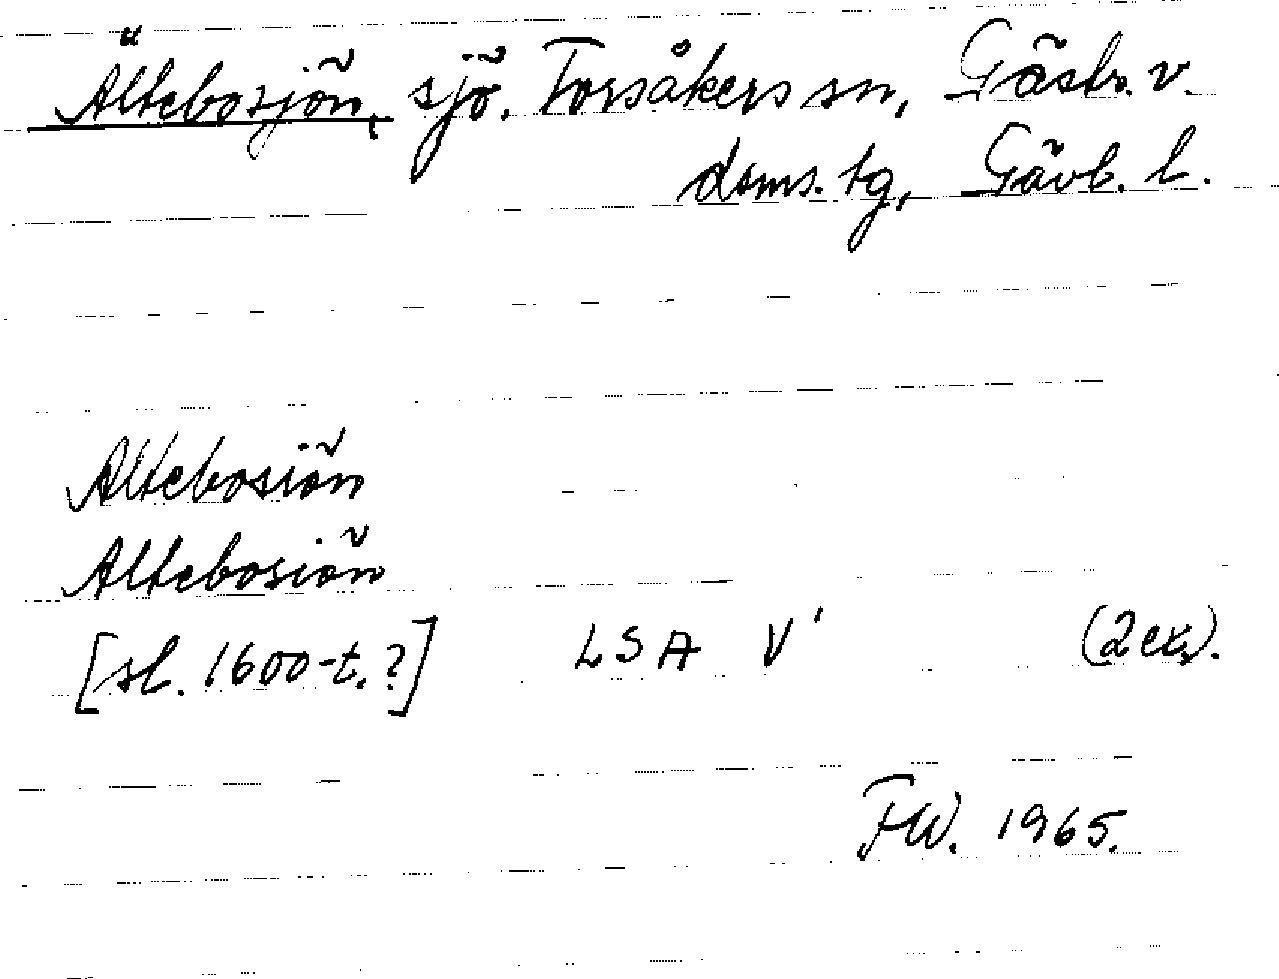 Ältebosjön, sjö. Torsåkers sn, Gästr. v.
doms. tg, Gävb. l.
Altebosiön
Altebosiön
[sl. 1600-t.?] LSA V' (2 ex.).
FW. 1965.